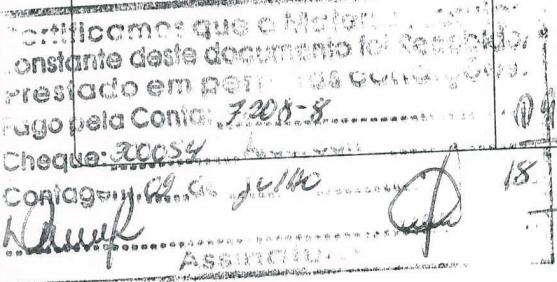 Certificamos que o Mater
constante deste documento foi
Prestado em per as condições.
Pago pela Conta: 7.208-8
Cheque:
Contagem, 02 de julho 18
Assinatura